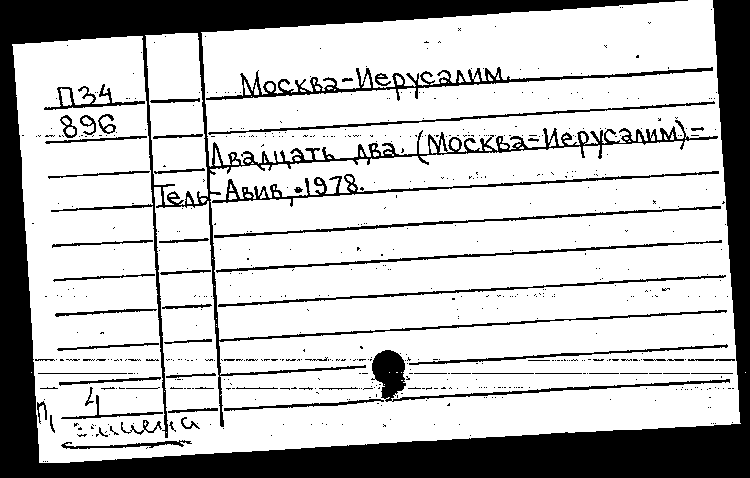 П34
896
Москва-Иерусалим.
Двадцать два. (Москва-Иерусалим).-
Тель-Авив, 1978.
П, 4